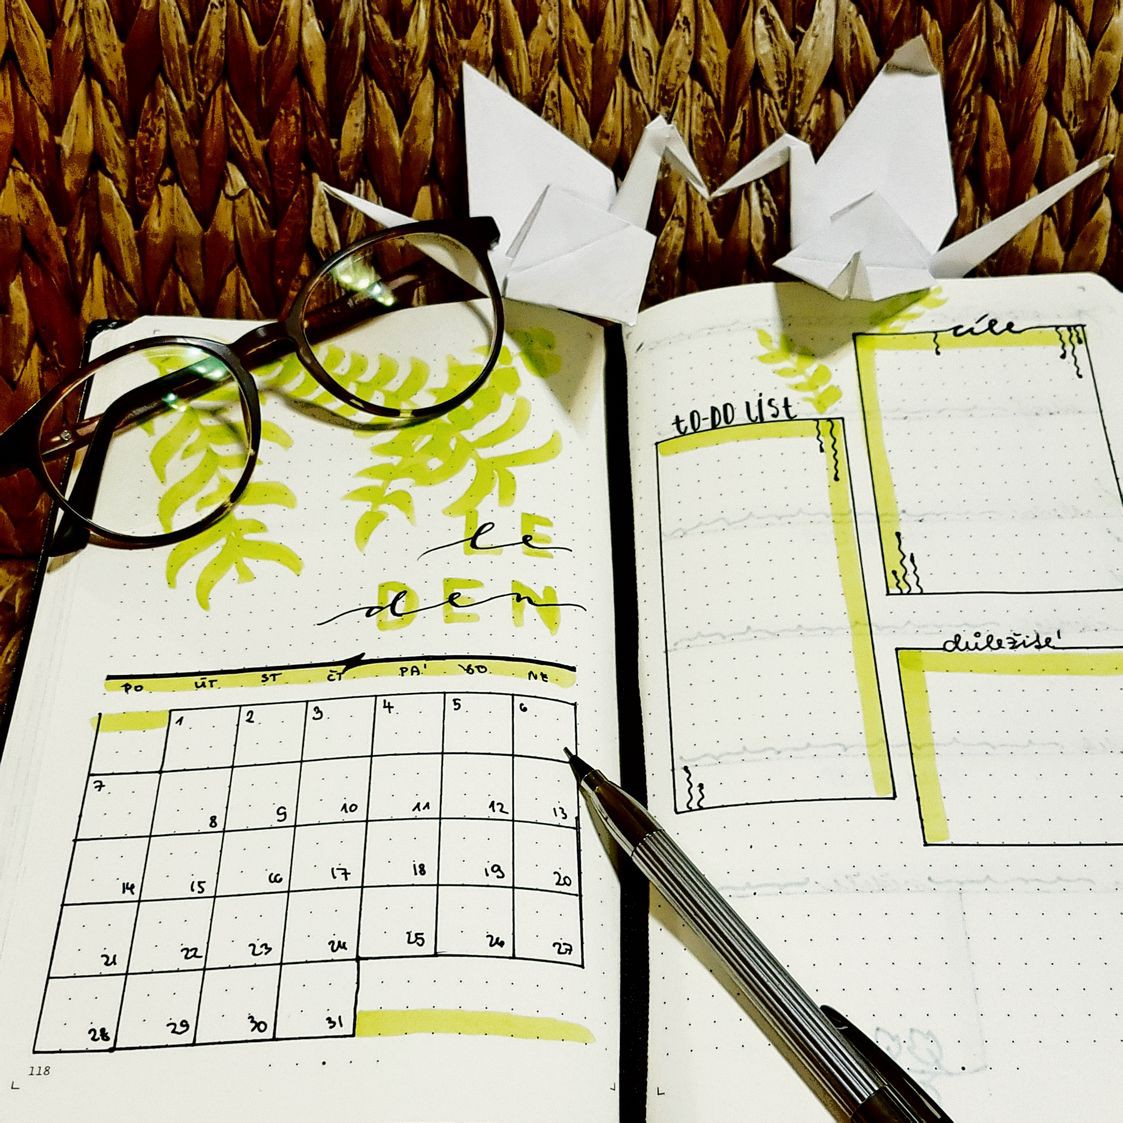 LE
le
DEN
den
PO ÚT ST ČT PÁ SO NE
1 2 3 4 5 6
7 8 9 10 11 12 13
14 15 16 17 18 19 20
21 22 23 24 25 26 27
28 29 30 31
118
cíle
to-do list
důležité!